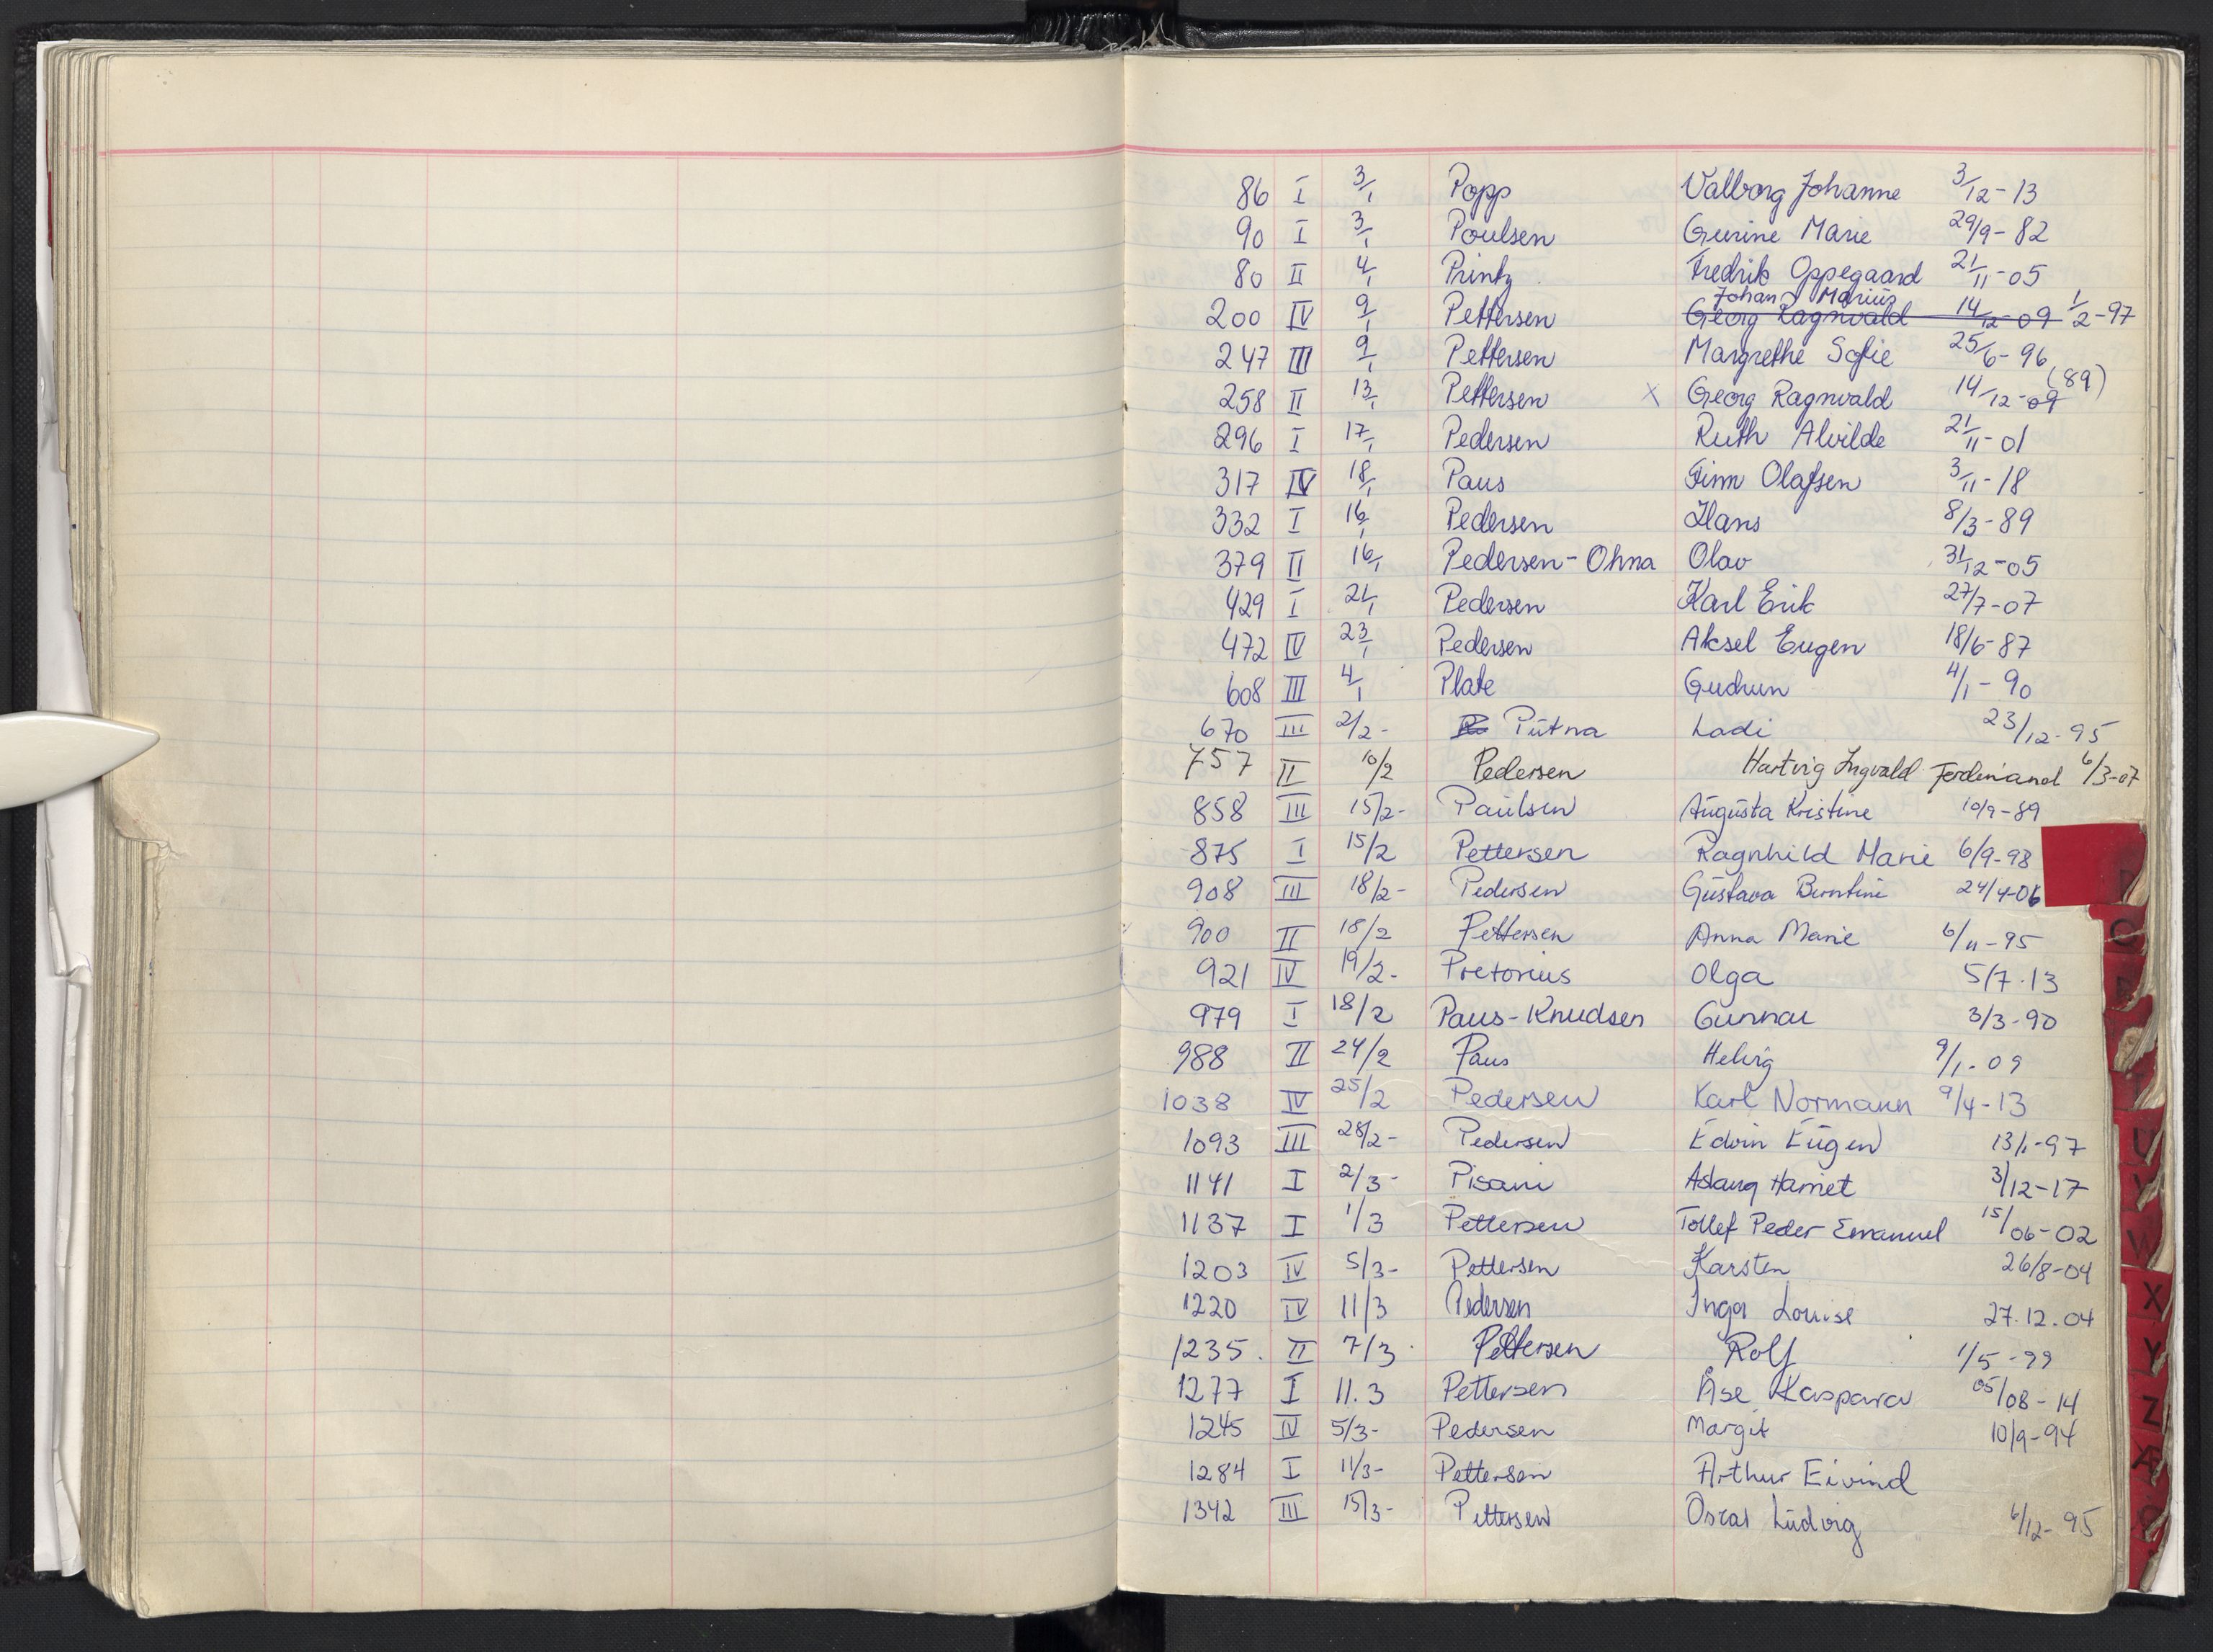 86 I 3/1 Popp Valborg Johanne 3/12-13
90 I 3/1 Poulsen Gurine Marie 29/9-82
80 II 4/1 Printz Fredrik Oppegaard 21/11-05
Johan Marius
200 IV 9/1 Pettersen Georg Ragnvald 14/12-09 1/2-97
247 III 9/1 Pettersen Margrethe Sofie 25/6-96
(89)
258 II 13/1 Pettersen X Georg Ragnvald 14/12-09
296 I 17/1 Pedersen Ruth Alvilde 21/11-01
317 IV 18/1 Paus Finn Olafsen 3/11-18
332 I 16/1 Pedersen Hans 8/3-89
379 II 16/1 Pedersen-Ohna Olav 31/12-05
429 I 21/1 Pedersen Karl Erik 27/7-07
472 IV 23/1 Pedersen Aksel Eugen 18/6-87
608 III 4/1 Plate Gudrun 4/1-90
670 III 2/2- Putna Ladi 23/12-95
757 II 10/2 Pedersen Hartvig Ingvald Ferdinand 6/3-07
858 III 15/2- Paulsen Augusta Kristine 10/9-89
875 I 15/2 Pettersen Ragnhild Marie 6/9-98
908 III 18/2- Pedersen Gustava Berntine 24/4-06
900 II 18/2 Pettersen Anna Marie 6/11-95
921 IV 19/2- Pretorius Olga 5/7.13
979 I 18/2 Paus-Knudsen Gunnar 3/3-90
988 II 24/2 Paus Helvig 9/1-09
1038 IV 25/2 Pedersen Karl Normann 9/4-13
1093 III 28/2- Pedersen Edvin Eugen 13/1-97
1141 I 2/3- Pisani Aslaug Harriet 3/12-17
1137 I 1/3 Pettersen Tollef Peder Emanuel 15/06-02
1203 IV 5/3- Pettersen Karsten 26/8-04
1220 IV 11/3 Pedersen Inga Louise 27.12.04
1235. II 7/3 Pettersen Rolf 1/5-99
1277 I 11.3 Pettersen Åse Kaspara 05/08-14
1245 IV 5/3- Pedersen Margit 10/9-94
1284 I 11/3- Pettersen Arthur Eivind
1342 III 15/3- Pettersen Oscar Ludvig 6/12-95
U
V
W
X
Y
Z
Æ
Ø